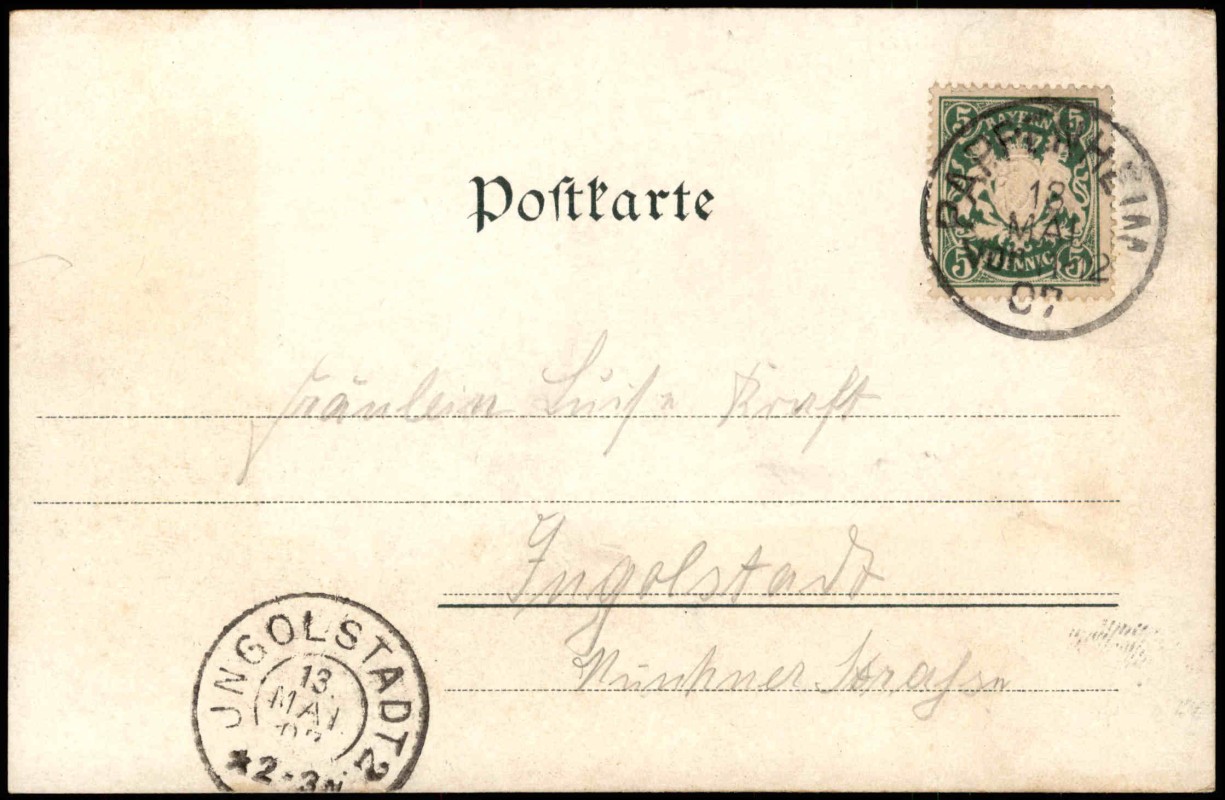 Postkarte
5 BAYERN 5
5 PFENNIG 5
PAPPENHEIM
13
MAI
VOR. 11-12
07
Fräulein Luise Kraft
Ingolstadt
Münchner Strasse
JNGOLSTADT 2
13
MAI
07
*2-3N